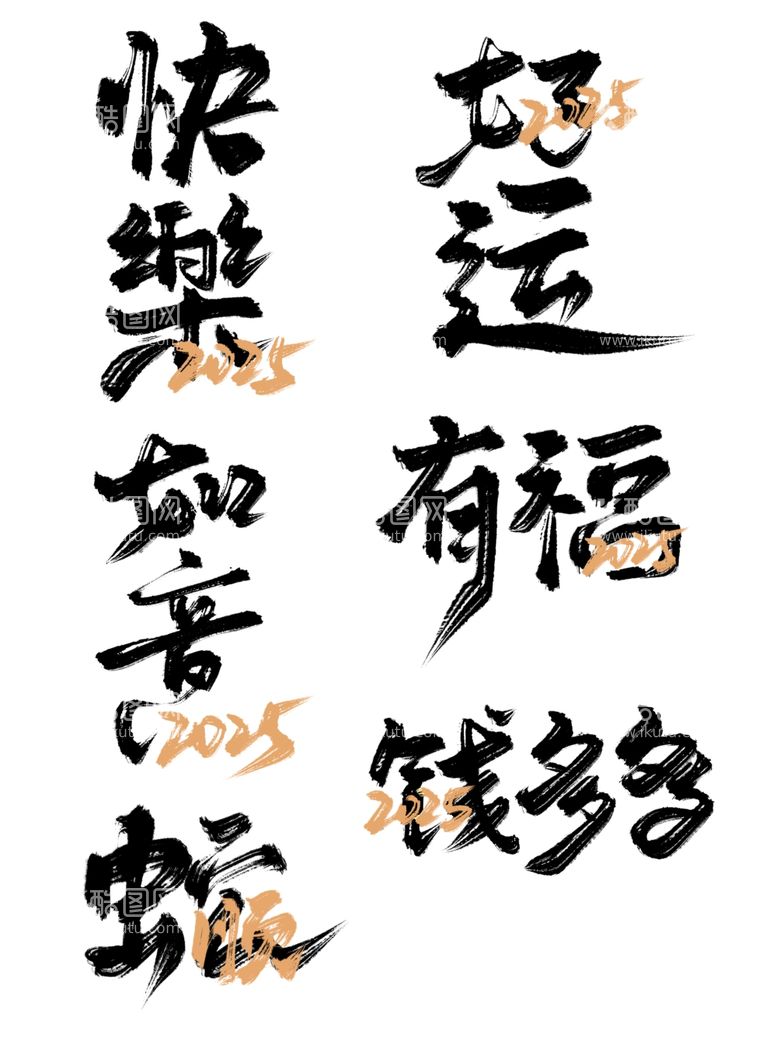 快樂
2025
好运
2025
如意
2025
有福
2025
钱多多
2025
顺
酷图网
www.ikutu.com